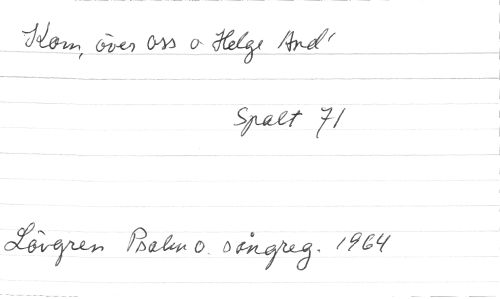 Kom, över oss o Helge And'
Spalt 71
Lövgren Psalm o. sångreg. 1964